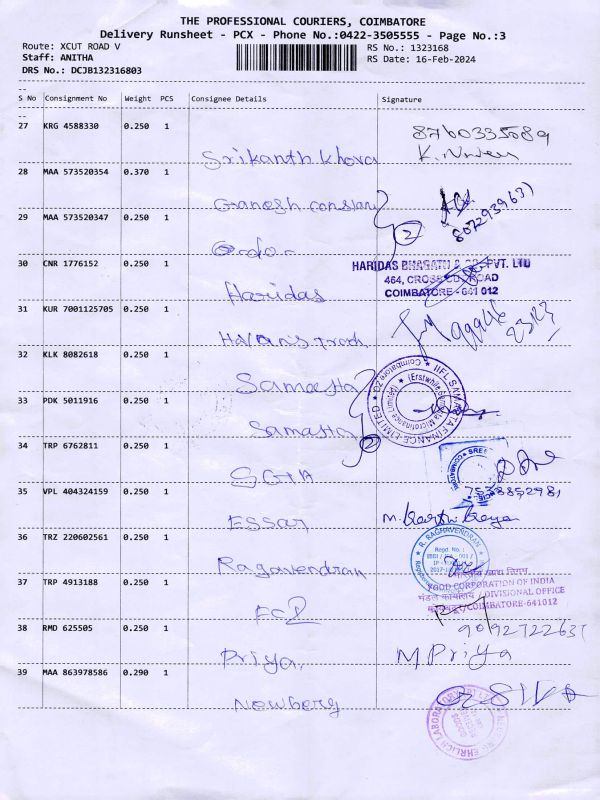 THE PROFESSIONAL COURIERS, COIMBATORE
Delivery Runsheet - PCX - Phone No.:0422-3505555 - Page No.:3
Route: XCUT ROAD V
RS No.: 1323168
Staff: ANITHA
RS Date: 16-Feb-2024
DRS No.: DCJB132316803
S No Consignment No Weight PCS Consignee Details Signature
27 KRG 4588330 0.250 1
8760335589
Srikanth Khova
28 MAA 573520354 0.370 1
Ganesh constan
8072939631
29 MAA 573520347 0.250 1
2
30 CNR 1776152 0.250 1
HARIDAS BHAGATH & CO. PVT. LTD
464, CROSS CUT ROAD
COIMBATORE - 641 012
Haridas
31 KUR 7001125705 0.250 1
32 KLK 8082618 0.250 1
Samasta
IIFL SAMASTA FINANCE LIMITED
Coimbatore
33 PDK 5011916 0.250 1
Samasta 2
34 TRP 6762811 0.250 1
SREE
COIMBATORE
SGIA
7538852981
35 VPL 404324159 0.250 1
ESSAR
36 TRZ 220602561 0.250 1
R. RAGHAVENDRAN
Regd. No.:
Ragavendran
37 TRP 4913188 0.250 1
FOOD CORPORATION OF INDIA
मंडल कार्यालय / DIVISIONAL OFFICE
COIMBATORE-641012
FCI
38 RMD 625505 0.250 1
9092722631
Priya,
M.Priya
39 MAA 863978586 0.290 1
Newberg
EHRLICH LABORATORY